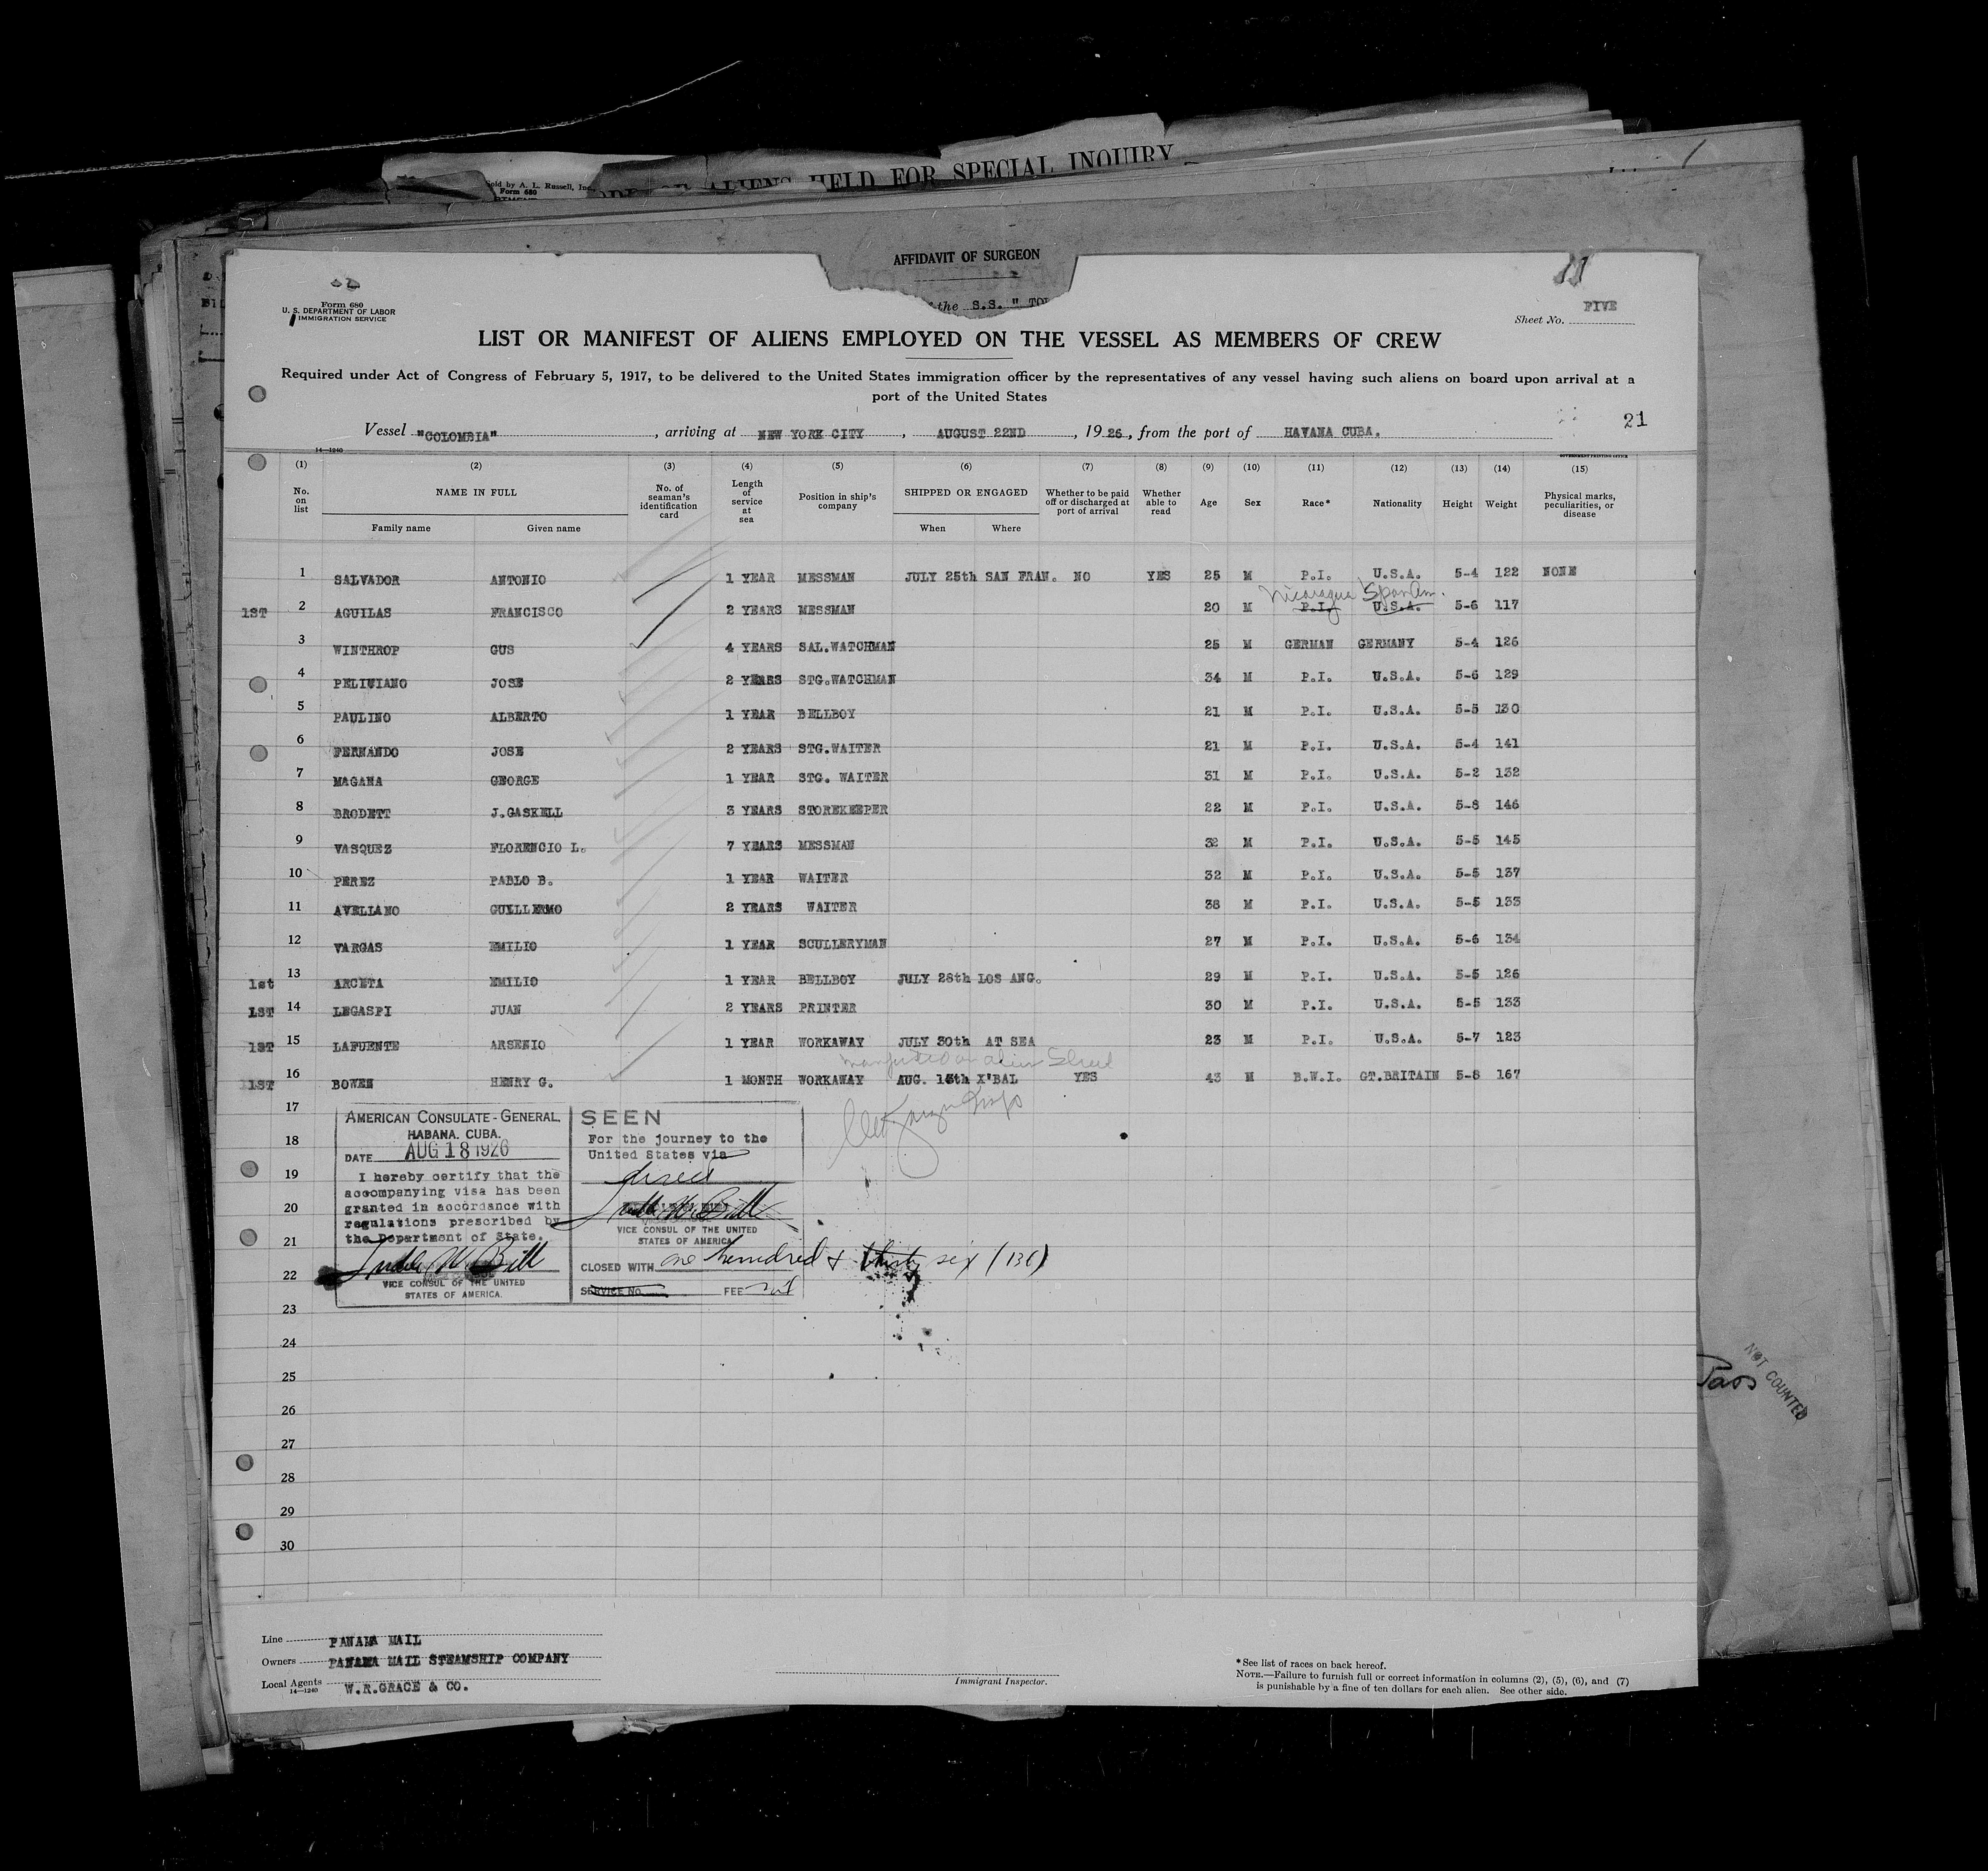 OF ALIENS HELD FOR SPECIAL INQUIRY
Sold by A. L. Russell, Inc.
Form 680
AFFIDAVIT OF SURGEON
the S.S. "
Form 680
U. S. DEPARTMENT OF LABOR
IMMIGRATION SERVICE
11
Sheet No. FIVE
LIST OR MANIFEST OF ALIENS EMPLOYED ON THE VESSEL AS MEMBERS OF CREW
Required under Act of Congress of February 5, 1917, to be delivered to the United States immigration officer by the representatives of any vessel having such aliens on board upon arrival at a
port of the United States
21
Vessel "COLOMBIA", arriving at NEW YORK CITY, AUGUST 22ND, 1926, from the port of HAVANA CUBA.
14—1240
GOVERNMENT PRINTING OFFICE
(1) (2) (3) (4) (5) (6) (7) (8) (9) (10) (11) (12) (13) (14) (15)
No. on list NAME IN FULL No. of seaman's identification card Length of service at sea Position in ship's company SHIPPED OR ENGAGED Whether to be paid off or discharged at port of arrival Whether able to read Age Sex Race* Nationality Height Weight Physical marks, peculiarities, or disease
Family name Given name When Where
1 SALVADOR ANTONIO 1 YEAR MESSMAN JULY 25th SAN FRAN. NO YES 25 M P.I. U.S.A. 5-4 122 NONE
Nicaragua Spanish.
1ST 2 AGUILAS FRANCISCO 2 YEARS MESSMAN 20 M P.I. U.S.A. 5-6 117
3 WINTHROP GUS 4 YEARS SAL.WATCHMAN 25 M GERMAN GERMANY 5-4 126
4 PELIUIANO JOSE 2 YEARS STG.WATCHMAN 34 M P.I. U.S.A. 5-6 129
5 PAULINO ALBERTO 1 YEAR BELLBOY 21 M P.I. U.S.A. 5-5 130
6 FERNANDO JOSE 2 YEARS STG.WAITER 21 M P.I. U.S.A. 5-4 141
7 MAGANA GEORGE 1 YEAR STG. WAITER 31 M P.I. U.S.A. 5-2 132
8 BRODETT J.GASKELL 3 YEARS STOREKEEPER 22 M P.I. U.S.A. 5-8 146
9 VASQUEZ FLORENCIO L. 7 YEARS MESSMAN 32 M P.I. U.S.A. 5-5 145
10 PEREZ PABLO B. 1 YEAR WAITER 32 M P.I. U.S.A. 5-5 137
11 AVELIANO GUILLERMO 2 YEARS WAITER 38 M P.I. U.S.A. 5-5 133
12 VARGAS EMILIO 1 YEAR SCULLERYMAN 27 M P.I. U.S.A. 5-6 134
1st 13 ARCETA EMILIO 1 YEAR BELLBOY JULY 28th LOS ANG. 29 M P.I. U.S.A. 5-5 126
1ST 14 LEGASPI JUAN 2 YEARS PRINTER 30 M P.I. U.S.A. 5-5 133
1ST 15 LAFUENTE ARSENIO 1 YEAR WORKAWAY JULY 30th AT SEA 23 M P.I. U.S.A. 5-7 123
Manifested on alien Sheet
1ST 16 BOWEN HENRY G. 1 MONTH WORKAWAY AUG. 15th X'BAL YES 43 M B.W.I. GT.BRITAIN 5-8 167
17
18
19
20
21
22
23
24
25
26
27
28
29
30
AMERICAN CONSULATE-GENERAL
HABANA. CUBA.
DATE AUG 18 1926
I hereby certify that the
accompanying visa has been
granted in accordance with
regulations prescribed by
the Department of State.
VICE CONSUL OF THE UNITED
STATES OF AMERICA.
SEEN
For the journey to the
United States via
direct
VICE CONSUL OF THE UNITED
STATES OF AMERICA
CLOSED WITH one hundred & thirty six (136)
SERVICE No. FEE nil
Pass
NOT COUNTED
Line PANAMA MAIL
Owners PANAMA MAIL STEAMSHIP COMPANY
Local Agents W.R.GRACE & CO.
14—1240
Immigrant Inspector.
*See list of races on back hereof.
NOTE.—Failure to furnish full or correct information in columns (2), (5), (6), and (7)
is punishable by a fine of ten dollars for each alien. See other side.